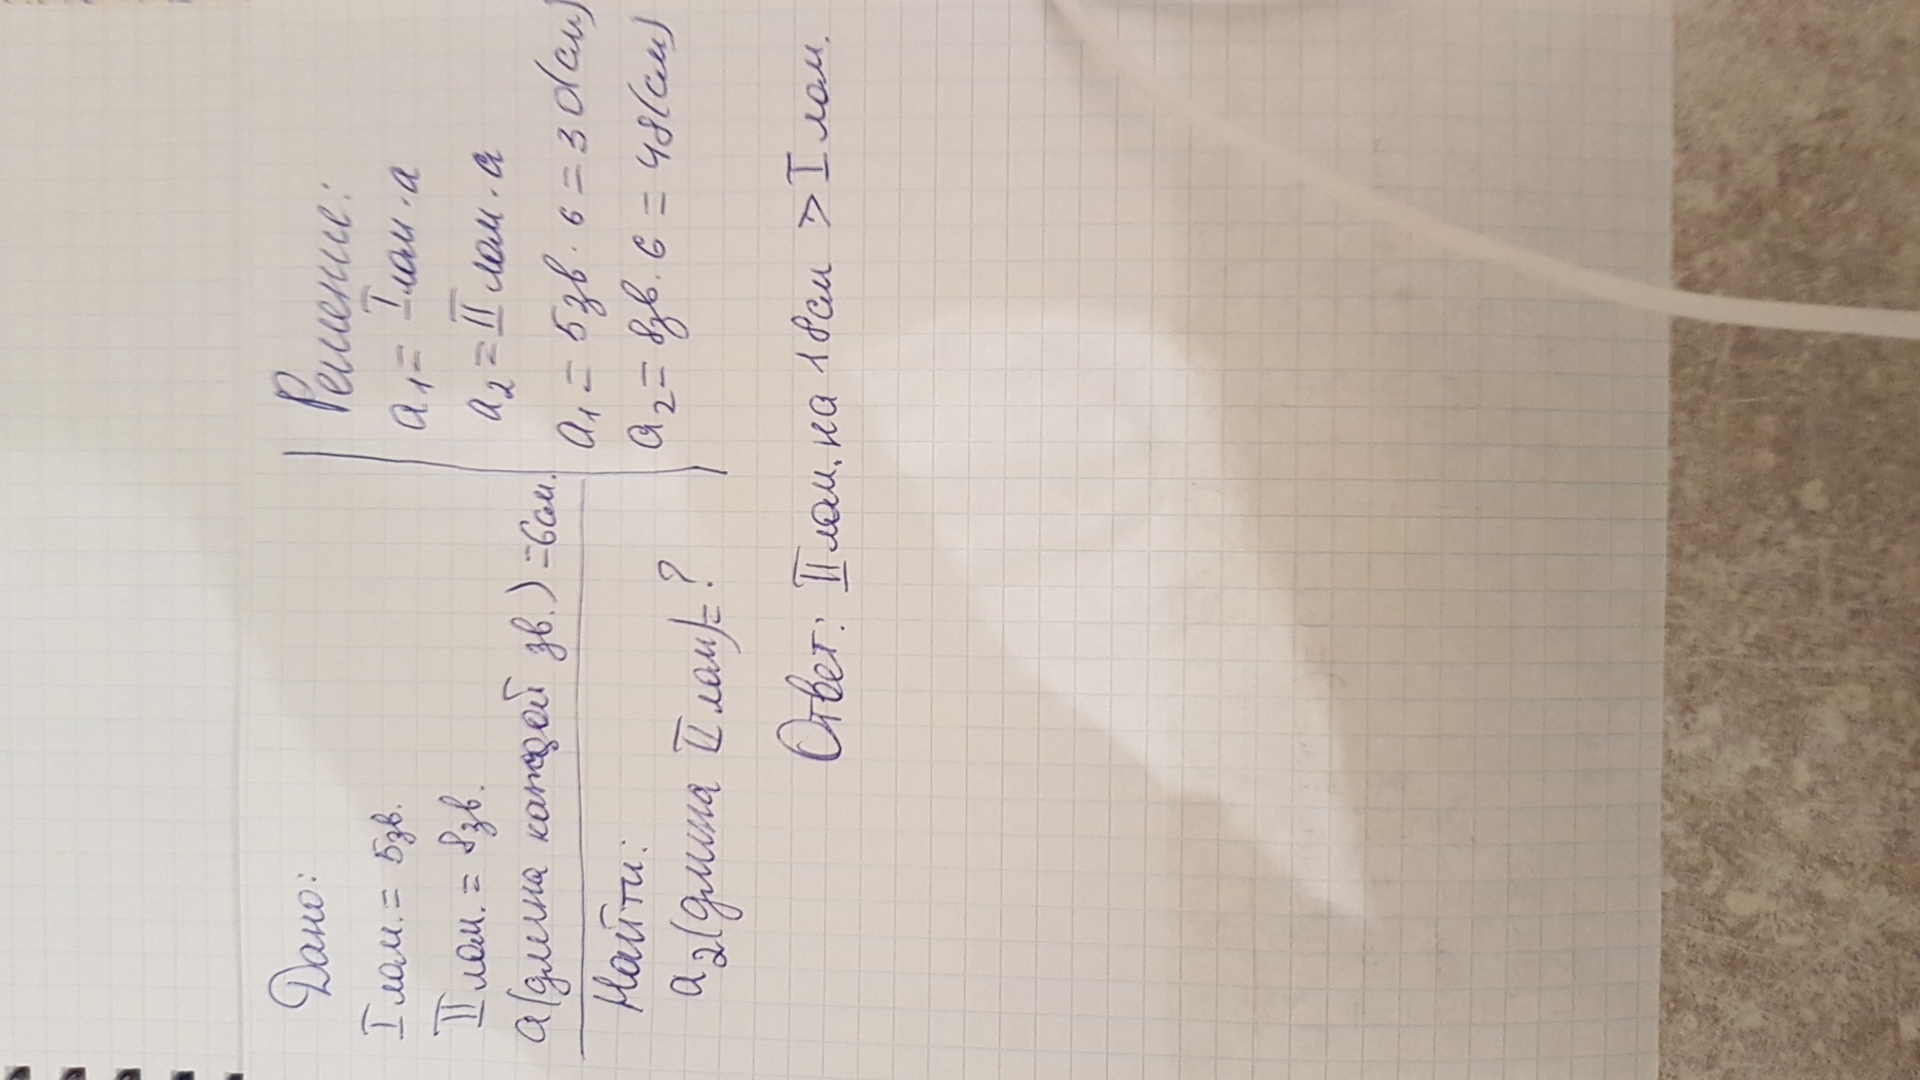 Дано:
I лом. = 5зв.
II лом. = 8зв.
a(длина каждой зв.) = 6см.
Найти:
a₂(длина II лом) = ?
Решение:
a₁ = I лом · a
a₂ = II лом · a
a₁ = 5зв. · 6 = 30(см)
a₂ = 8зв. · 6 = 48(см)
Ответ: II лом. на 18см > I лом.